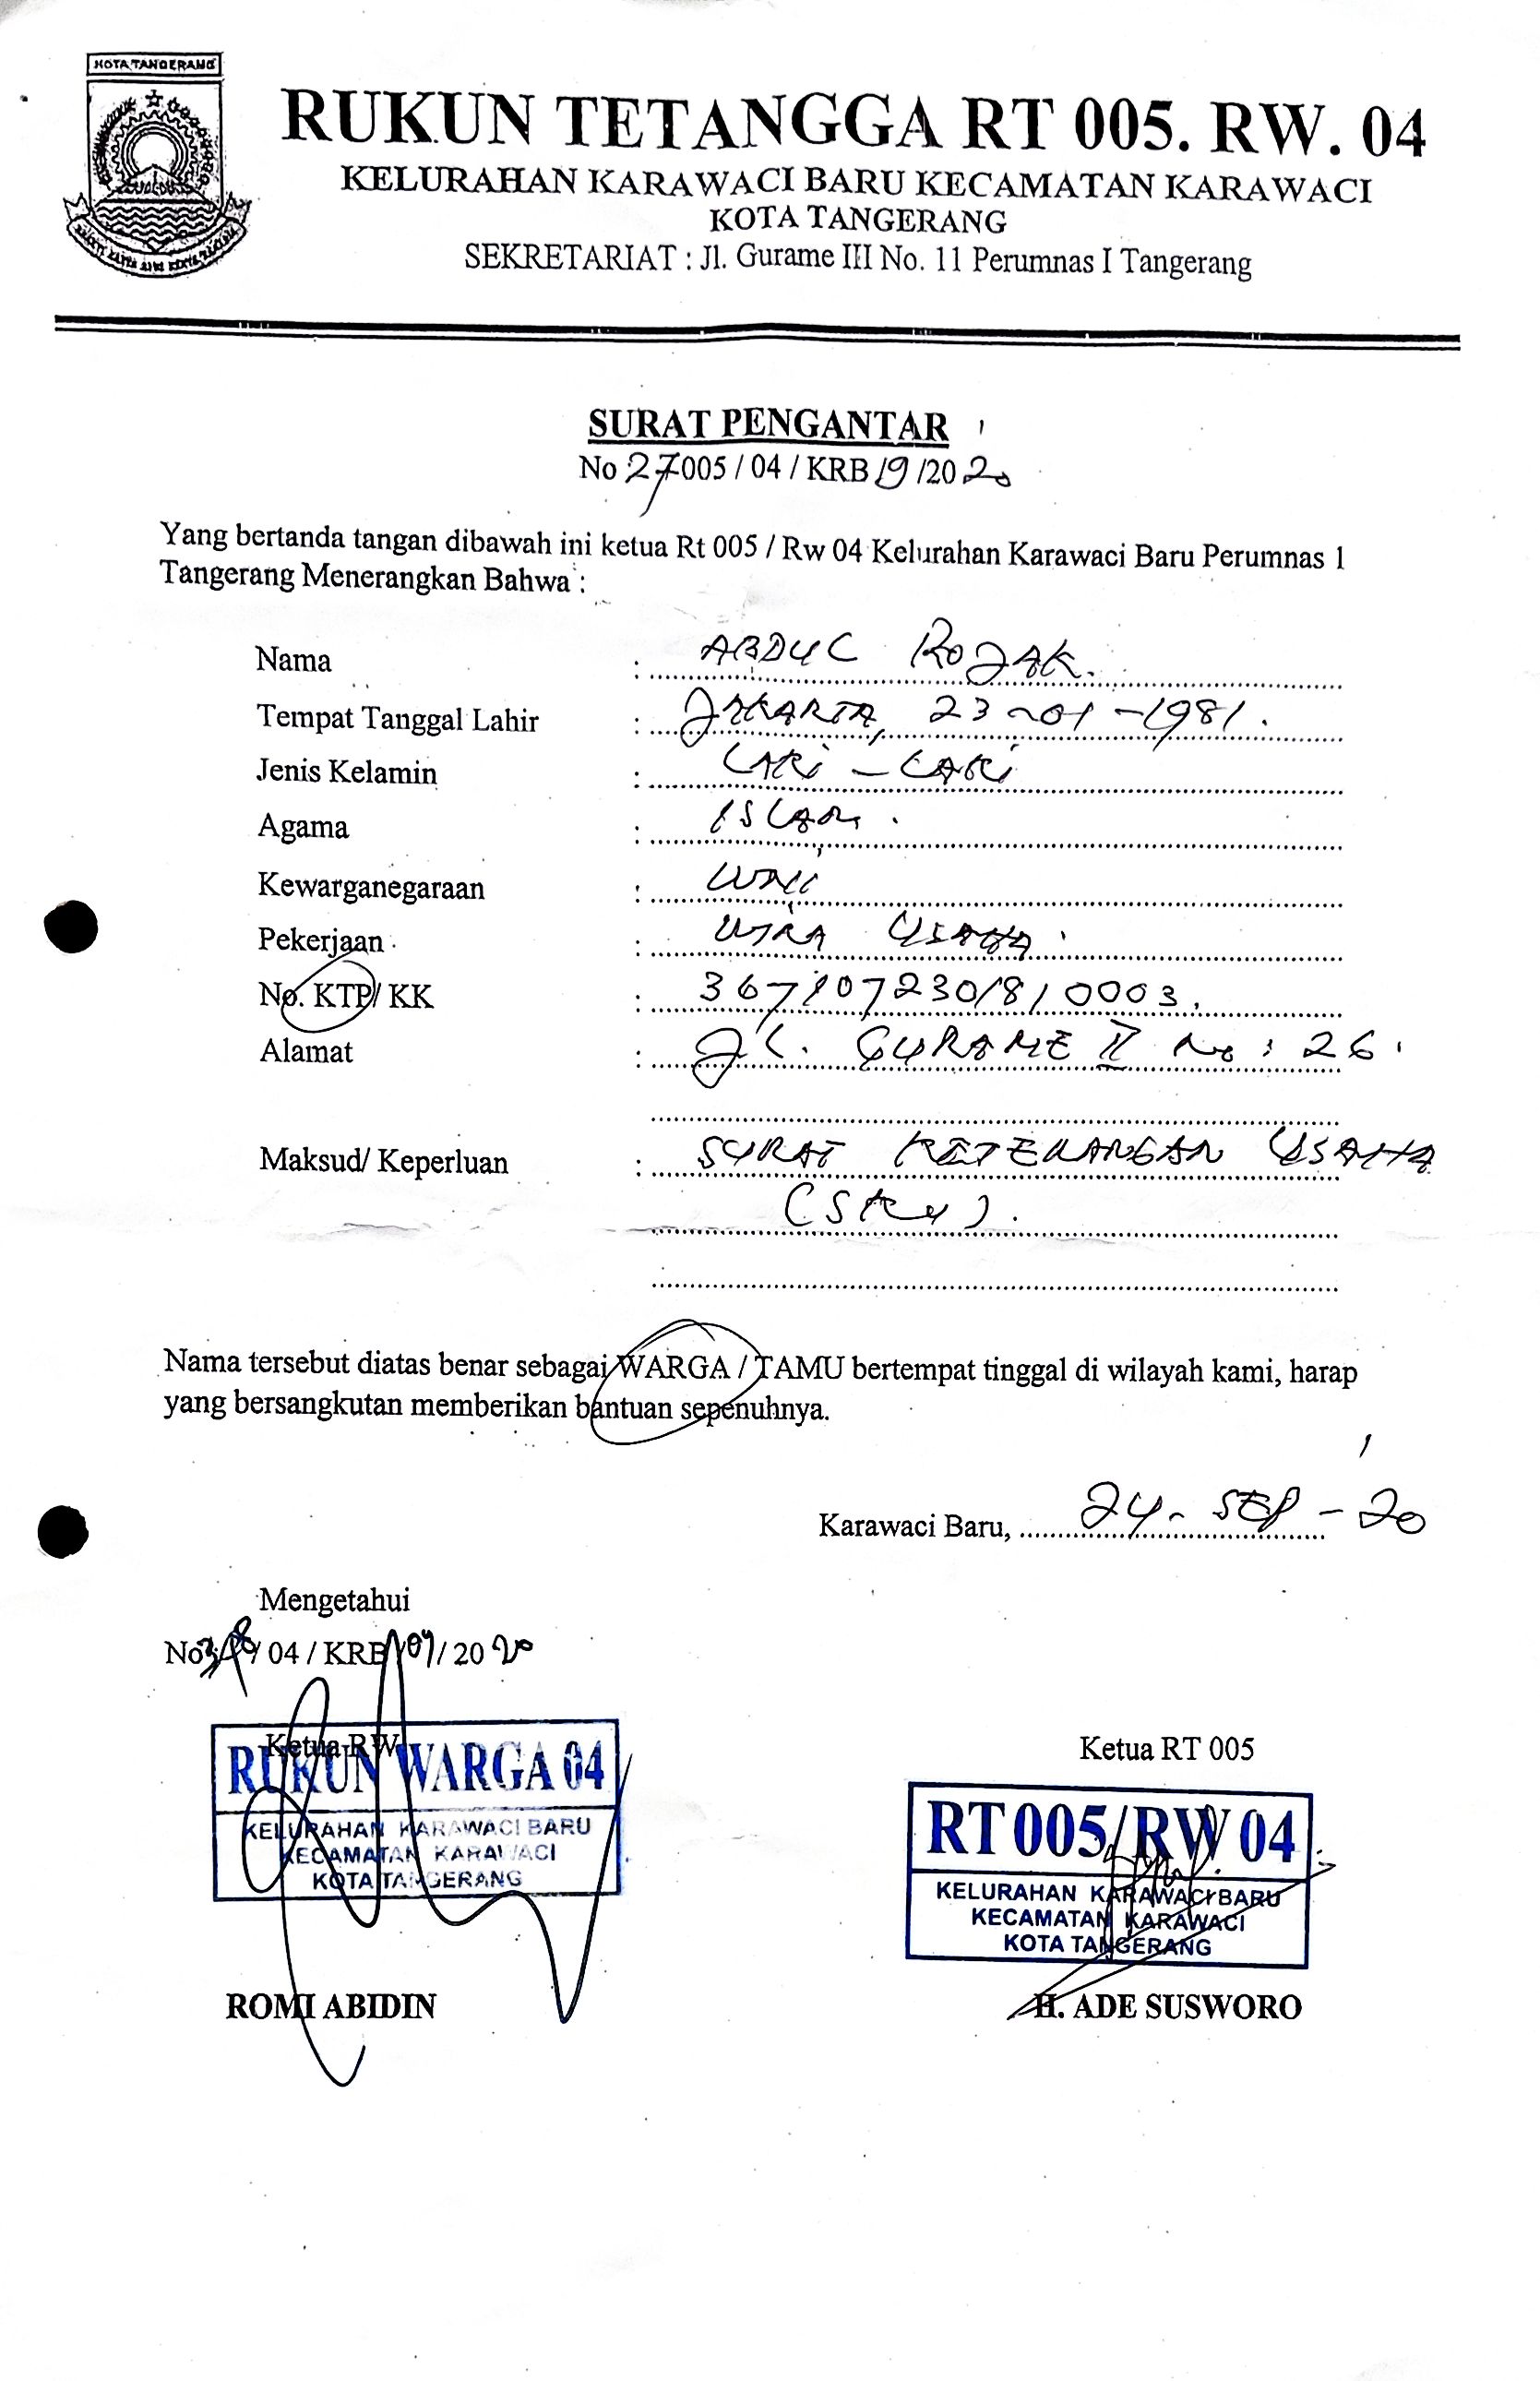 KOTA TANGERANG
RUKUN TETANGGA RT 005. RW. 04
KELURAHAN KARAWACI BARU KECAMATAN KARAWACI
KOTA TANGERANG
SEKRETARIAT : Jl. Gurame III No. 11 Perumnas I Tangerang
SURAT PENGANTAR
No 27 005 / 04 / KRB /9 /20 20
Yang bertanda tangan dibawah ini ketua Rt 005 / Rw 04 Kelurahan Karawaci Baru Perumnas 1
Tangerang Menerangkan Bahwa :
Nama : ABDUL ROJAK.
Tempat Tanggal Lahir : JAKARTA, 23-01-1981.
Jenis Kelamin : LAKI - LAKI
Agama : ISLAM.
Kewarganegaraan : WNI
Pekerjaan : WIRA USAHA.
No. KTP/ KK : 3671072301810003.
Alamat : JL. GURAME II No : 26.
Maksud/ Keperluan : SURAT KETERANGAN USAHA
(SKU).
Nama tersebut diatas benar sebagai WARGA / TAMU bertempat tinggal di wilayah kami, harap
yang bersangkutan memberikan bantuan sepenuhnya.
Karawaci Baru, 24- SEP - 20
Mengetahui
No / 04 / KRB /09/ 20 20
Ketua RW
RUKUN WARGA 04
KELURAHAN KARAWACI BARU
KECAMATAN KARAWACI
KOTA TANGERANG
ROMI ABIDIN
Ketua RT 005
RT 005/RW 04
KELURAHAN KARAWACI BARU
KECAMATAN KARAWACI
KOTA TANGERANG
H. ADE SUSWORO